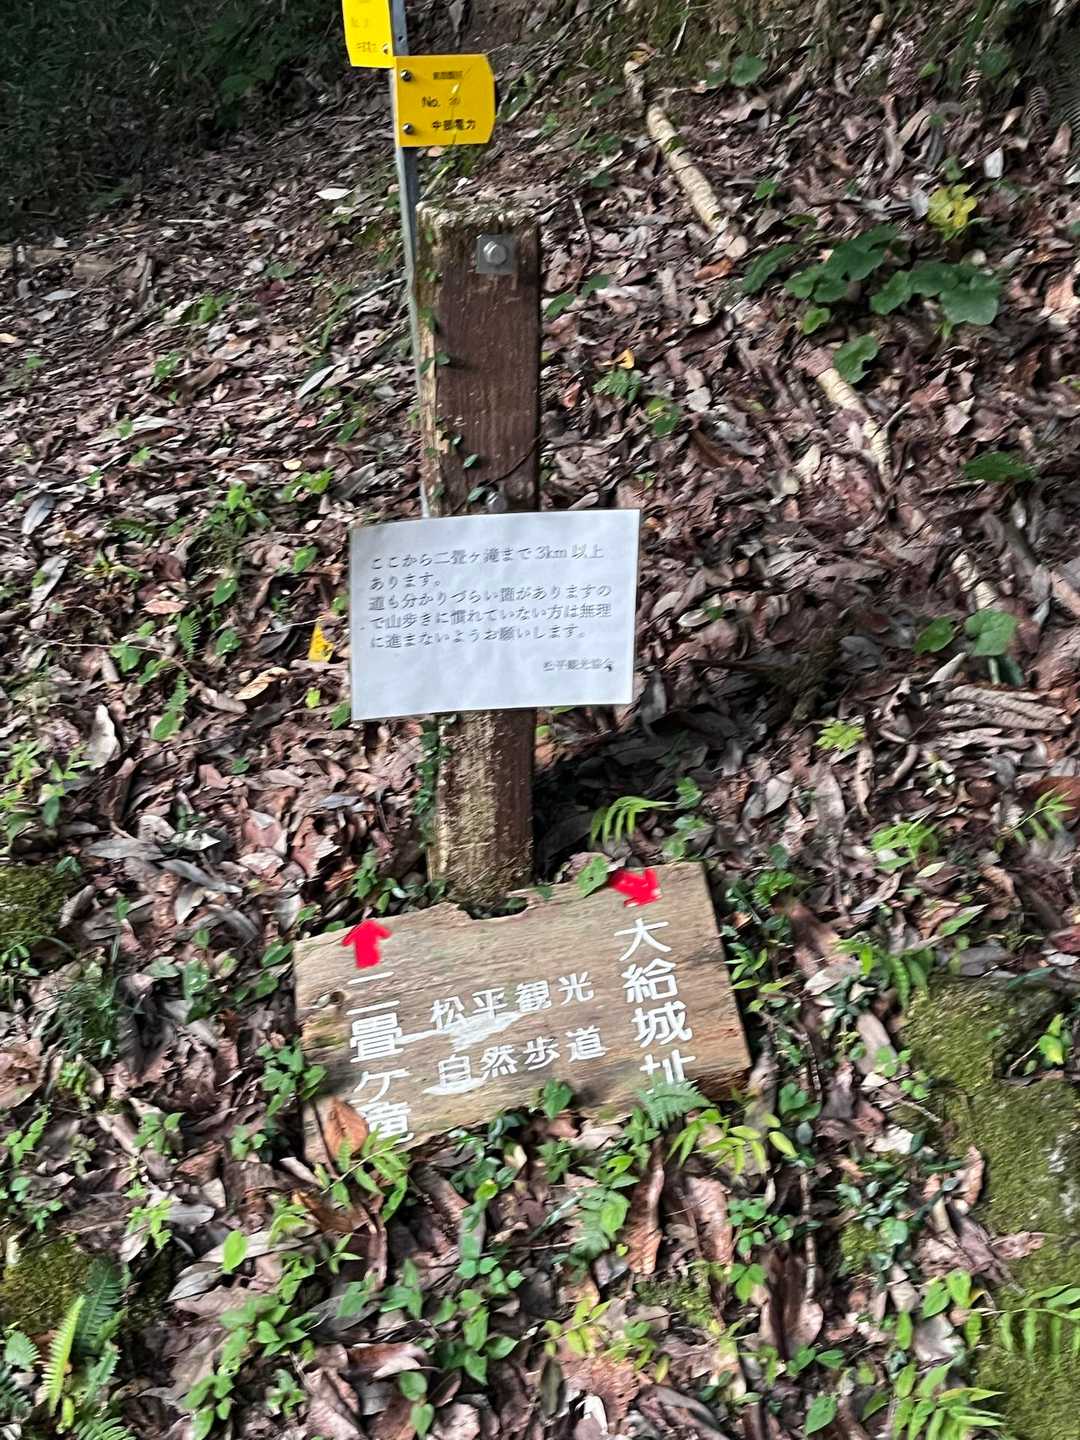 No.
中部電力
ここから二畳ヶ滝まで3km以上
あります。
道も分かりづらい箇がありますの
で山歩きに慣れていない方は無理
に進まないようお願いします。
松平観光協会
大給城址
松平観光
自然歩道
二畳ケ滝